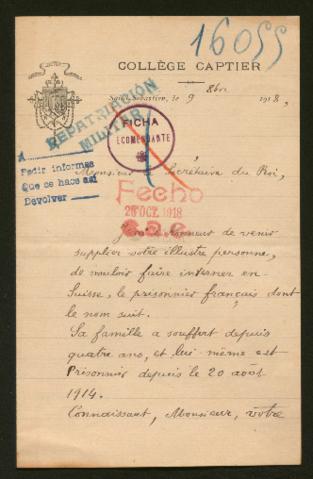 16055
COLLÈGE CAPTIER
Saint-Sébastien, le 9 8bre 1918,
REPATRIACIÓN
MILITAR
FICHA
RECOMENDANTE
A
Pedir informes
Que se hace así
Devolver
Monsieur le Secrétaire du Roi,
Fecho
26 OCT. 1918
J'ai l'honneur de venir
supplier votre illustre personne,
de vouloir faire interner en
Suisse, le prisonnier français dont
le nom suit.
Sa famille a souffert depuis
quatre ans, et lui même est
Prisonnier depuis le 20 août
1914.
Connaissant, Monsieur, votre